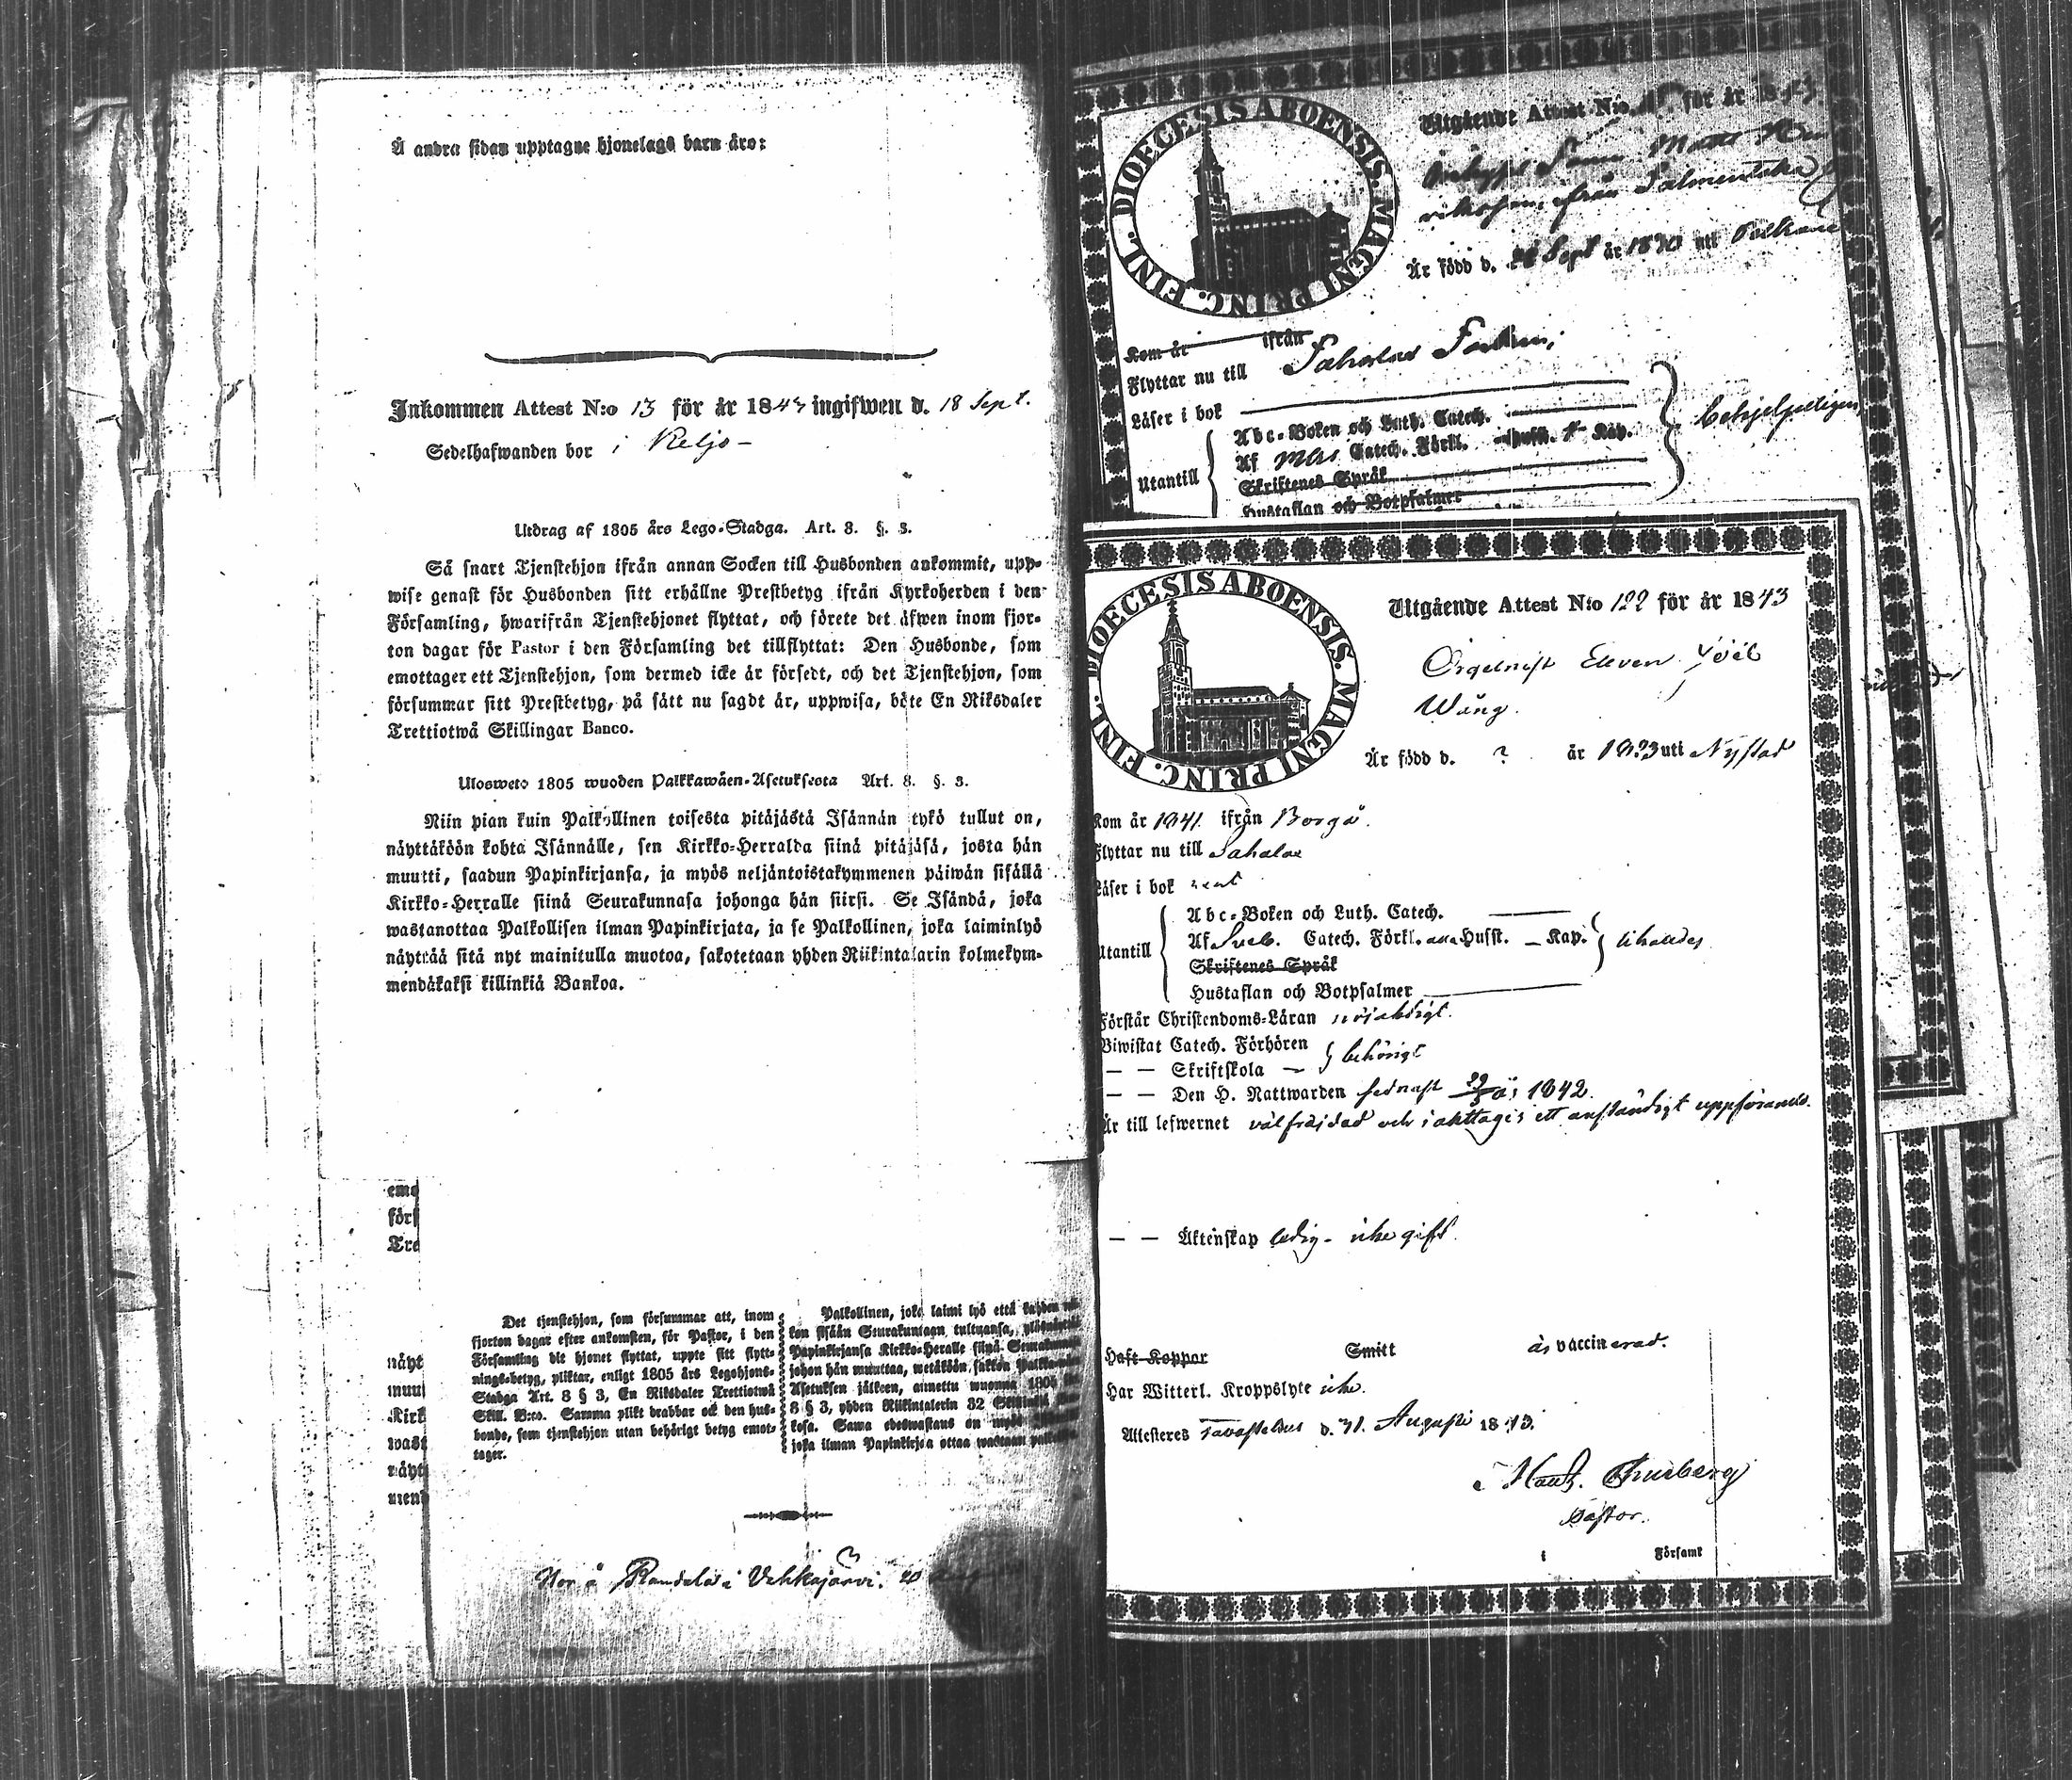 Å andra sidan upptagne hjonelags barn äro:
Inkommen Attest N:o 13 för år 1843 ingifwen d. 18 Sept.
Sedelhafwanden bor i Keljo –
Utdrag af 1805 års Lego-Stadga. Art. 8. §. 3.
Så snart Tjenstehjon ifrån annan Socken till Husbonden ankommit, upp-
wise genast för Husbonden sitt erhållne Prestbetyg ifrån Kyrkoherden i den
Församling, hwarifrån Tjenstehjonet flyttat, och förete det äfwen inom fjor-
ton dagar för Pastor i den Församling det tillflyttat: Den Husbonde, som
emottager ett Tjenstehjon, som dermed icke är försedt, och det Tjenstehjon, som
försummar sitt Prestbetyg, på sätt nu sagdt är, uppwisa, böte En Riksdaler
Trettiotwå Skillingar Banco.
Ulosweto 1805 wuoden Palkkawäen-Asetuksesta Art. 8. §. 3.
Niin pian kuin Palkollinen toisesta pitäjästä Isännän tykö tullut on,
näyttäköön kohta Isännälle, sen Kirkko-Herralda siinä pitäjäsä, josta hän
muutti, saadun Papinkirjansa, ja myös neljäntoistakymmenen päiwän sisällä
Kirkko-Herralle siinä Seurakunnasa johonga hän siirsi. Se Isändä, joka
wastanottaa Palkollisen ilman Papinkirjata, ja se Palkollinen, joka laiminlyö
näyttää sitä nyt mainitulla muotoa, sakotetaan yhden Riikintalarin kolmekym-
mendäkaksi killinkiä Bankoa.
emo
förs
Tre
näyt
muu
Kirk
wast
näyt
mend
Det tjenstehjon, som försummar att, inom
fjorton dagar efter ankomsten, för Pastor, i den
Församling dit hjonet flyttat, uppte sitt flytt-
nings-betyg, pliktar, enligt 1805 års Legohjons-
Stadga Art. 8 § 3, En Riksdaler Trettiotwå
Skill. B:co. Samma plikt drabbar ock den hus-
bonde, som tjenstehjon utan behörigt betyg emot-
tager.
Palkollinen, joka laimi lyö että kahden
kon sisään Seurakuntaan tultuansa,
Papinkirjansa Kirkko-Heralle siinä Seurakunnas
johon hän muuttaa, wetäköön sakkon
Asetuksen jälkeen, annettu wuonna 1805
8 § 3, yhden Riikintalerin 32
kosa. Sama edeswastaus on myös
joka ilman Papinkirjaa ottaa wastaan
Bor å Randala i Vehkajärvi. 20
DIOECESIS ABOENSIS. MAGNI PRINC. FINL.
Utgående Attest N:o för år 1843.
Matts Hen
riksson, från Salmentaka
Är född d. 24 Sept år 1820 uti Pelkäne
Kom år ifrån
Flyttar nu till Sahalax
Läser i bok
Utantill
Abc-Boken och Luth. Catech.
Af Catech. Förkl. Husst. Kap.
Skriftenes Språk
Hustaflan och Botpsalmer
behjelpeligen
DIOECESIS ABOENSIS. MAGNI PRINC. FINL.
Utgående Attest N:o 122 för år 1843
Orgelnist Eleven Joël
Wång.
Är född d. ? år 1823 uti Nystad
Kom år 1841. ifrån Borgå.
Flyttar nu till Sahalax
Läser i bok rent
Utantill
Abc-Boken och Luth. Catech.
Af Sveb. Catech. Förkl. alla Husst. – Kap.
Skriftenes Språk
Hustaflan och Botpsalmer
Förstår Christendoms-Läran nöjaktigt.
Biwistat Catech. Förhören
— — Skriftskola — behörigt
— — Den H. Nattwarden sednast år 1842.
Är till lefwernet välfräjdad och iakttagit ett anständigt uppförande.
— — Äktenskap ledig – icke gift.
Haft Koppor Smitt är vaccinerad.
Har Witterl. Kroppslyte icke.
Attesteras Tavastehus d. 31. Augusti 1843.
Pastor.
i Församl